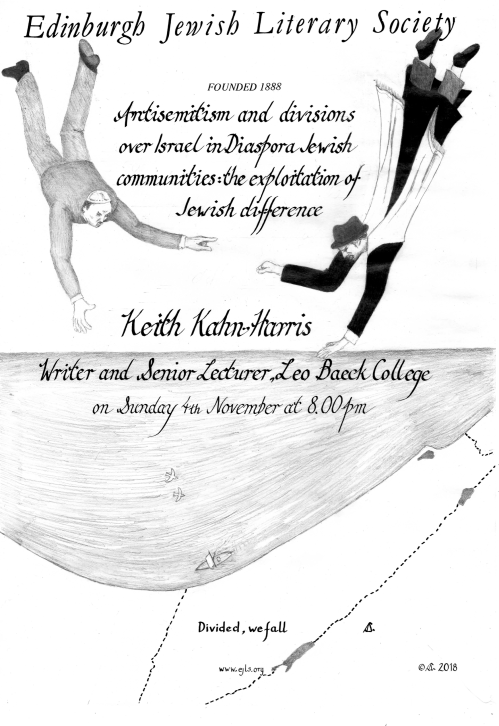 Edinburgh Jewish Literary Society
FOUNDED 1888
Antisemitism and divisions
over Israel in Diaspora Jewish
communities: the exploitation of
Jewish difference
Keith Kahn-Harris
Writer and Senior Lecturer, Leo Baeck College
on Sunday 4th November at 8.00pm
Divided, we fall
www.ejls.org
2018